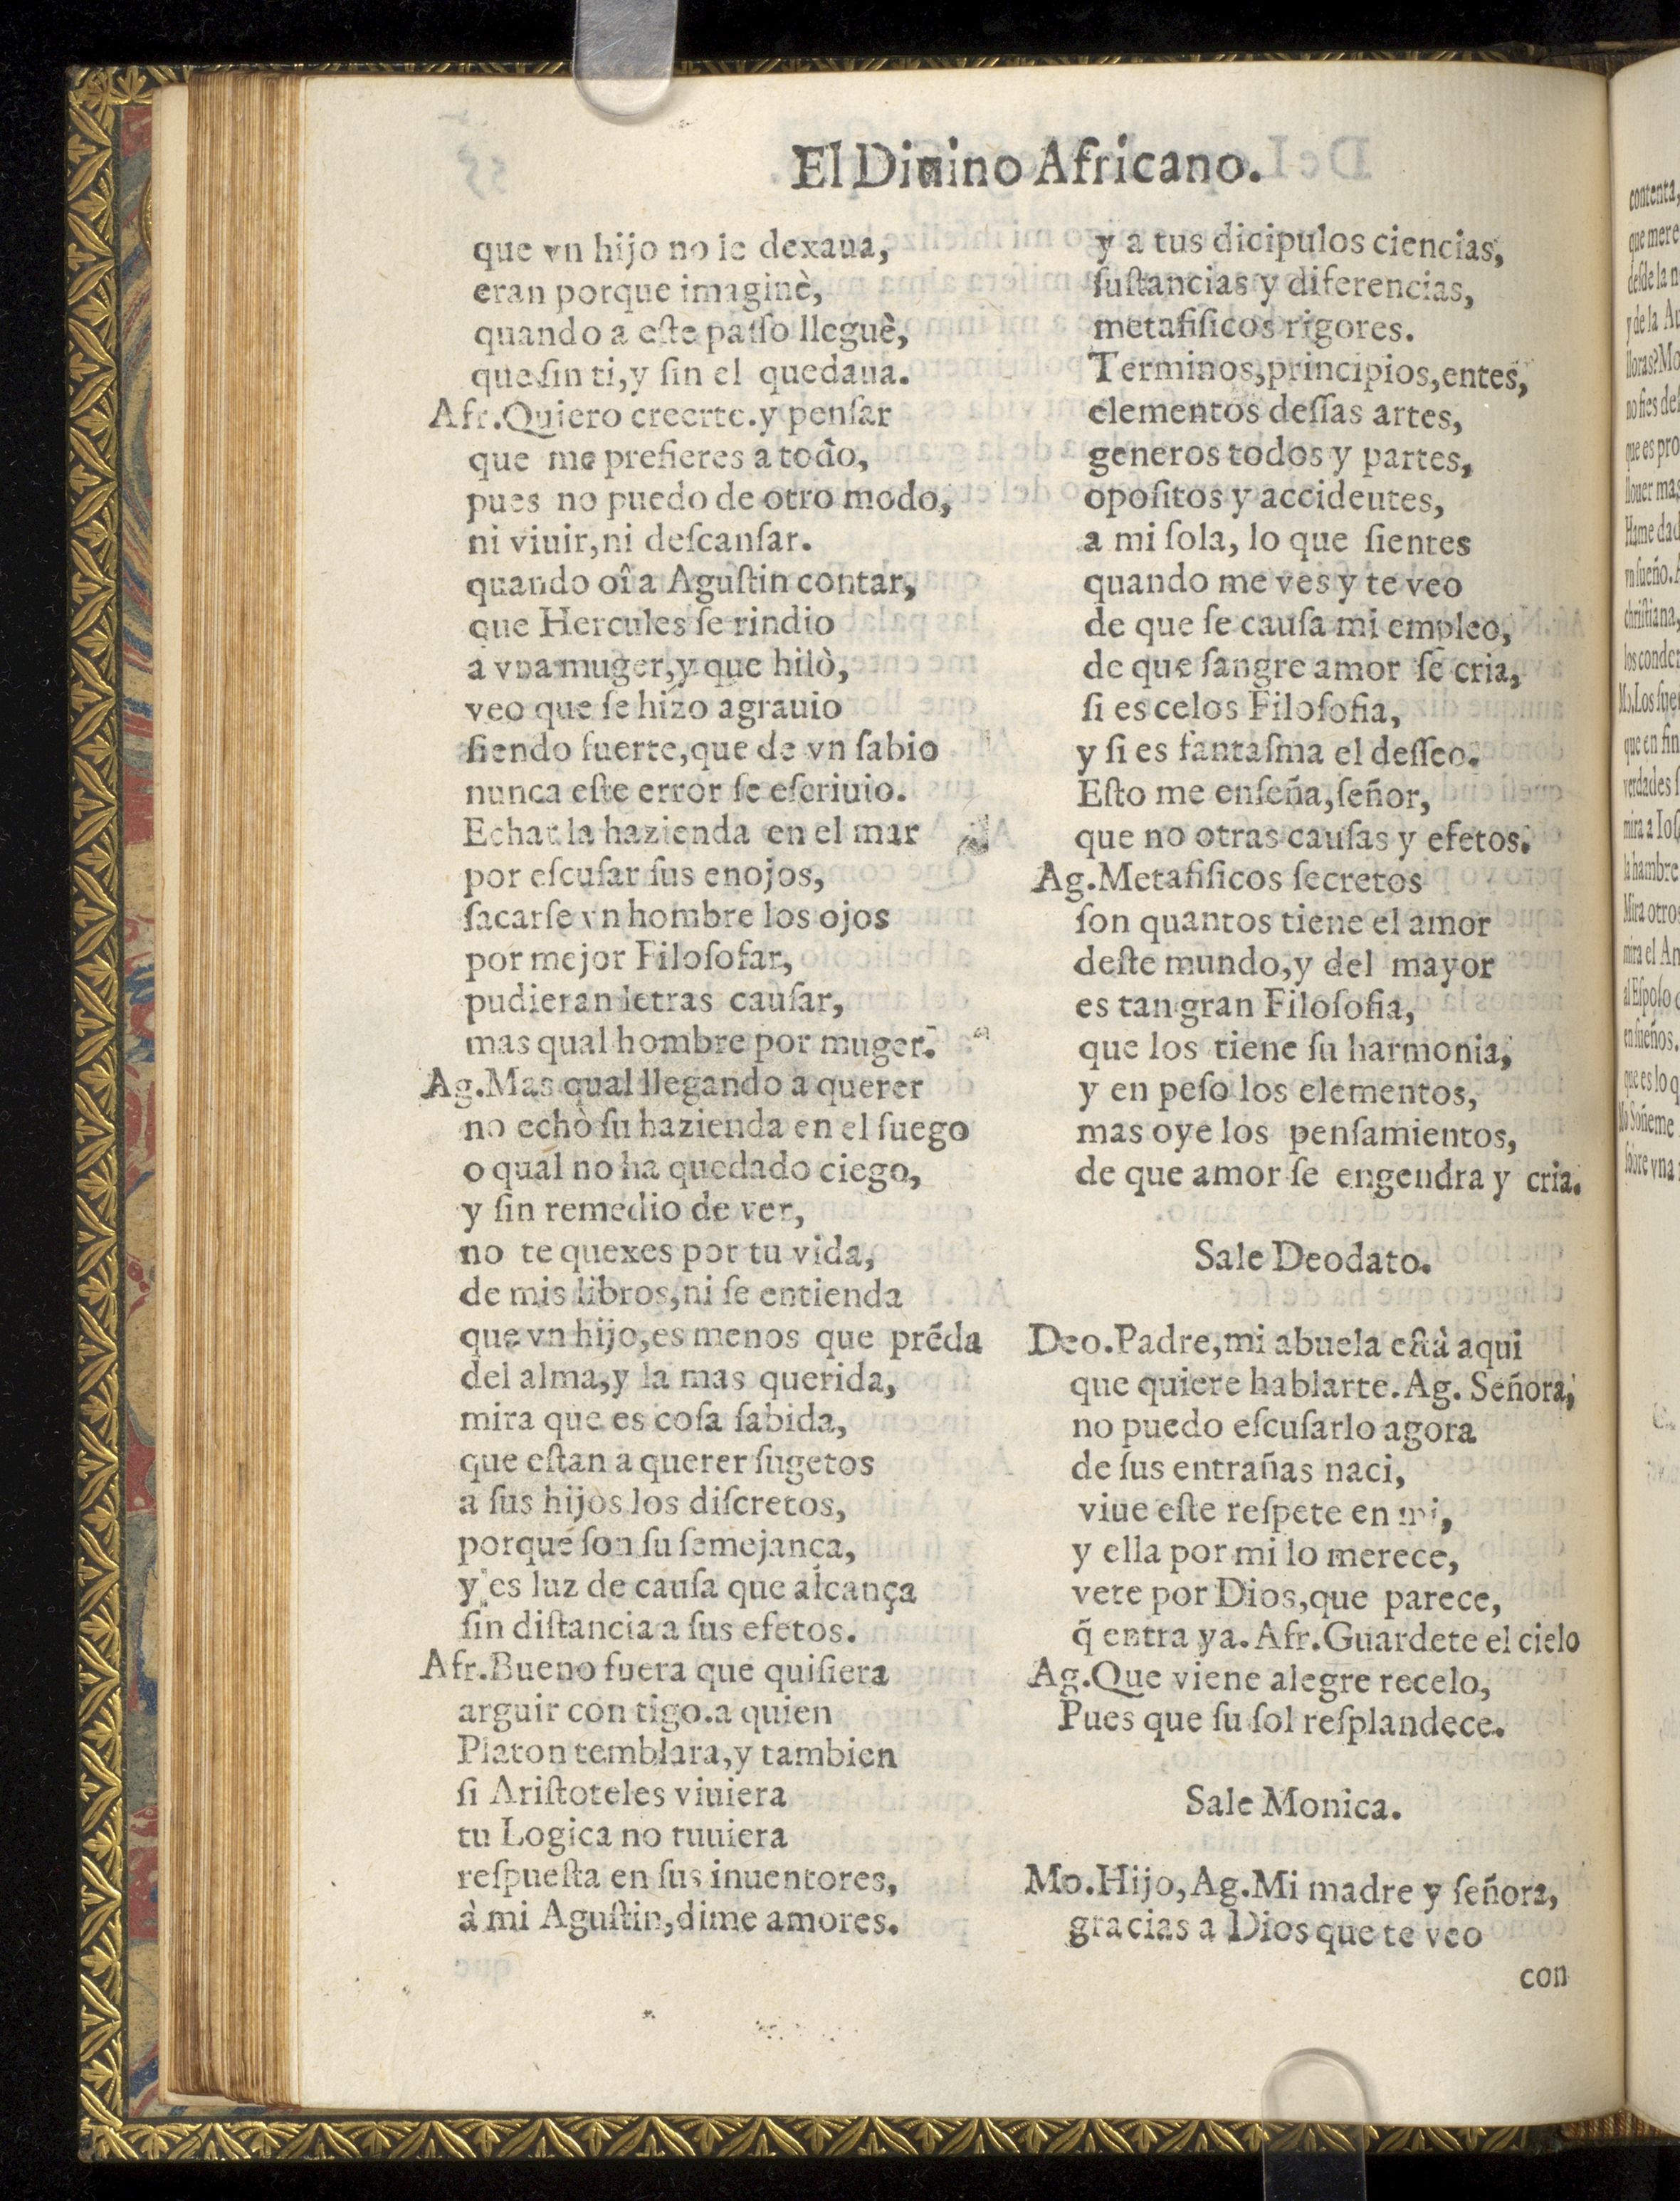 El Diuino Africano.
que vn hijo no le dexaua,
eran porque imaginè,
quando a eſte paſſo lleguè,
que ſin ti,y ſin el quedaua.
Afr.Quiero creerte.y penſar
que me prefieres a todo,
pues no puedo de otro modo,
ni viuir,ni deſcanſar.
quando oî a Aguſtin contar,
que Hercules ſe rindio
a vna muger,y que hilò,
veo que ſe hizo agrauio
ſiendo fuerte,que de vn ſabio
nunca eſte error ſe eſcriuio.
Echar la hazienda en el mar
por eſcuſar ſus enojos,
ſacarſe vn hombre los ojos
por mejor Filoſofar,
pudieran letras cauſar,
mas qual hombre por muger.
Ag.Mas qual llegando a querer
no echò ſu hazienda en el fuego
o qual no ha quedado ciego,
y ſin remedio de ver,
no te quexes por tu vida,
de mis libros,ni ſe entienda
que vn hijo,es menos que prẽda
del alma,y la mas querida,
mira que es coſa ſabida,
que eſtan a querer ſugetos
a ſus hijos los diſcretos,
porque ſon ſu ſemejança,
y es luz de cauſa que alcança
ſin diſtancia a ſus efetos.
Afr.Bueno fuera que quiſiera
arguir con tigo.a quien
Platon temblara,y tambien
ſi Ariſtoteles viuiera
tu Logica no tuuiera
reſpueſta en ſus inuentores,
à mi Aguſtin,dime amores.
y a tus dicipulos ciencias,
ſuſtancias y diferencias,
metafiſicos rigores.
Terminos,principios,entes,
elementos deſſas artes,
generos todos y partes,
opoſitos y accideutes,
a mi ſola, lo que ſientes
quando me ves y te veo
de que ſe cauſa mi empleo,
de que ſangre amor ſe cria,
ſi es celos Filoſofia,
y ſi es fantaſma el deſſeo.
Eſto me enſeña,ſeñor,
que no otras cauſas y efetos.
Ag.Metafiſicos ſecretos
ſon quantos tiene el amor
deſte mundo,y del mayor
es tan gran Filoſofia,
que los tiene ſu harmonia,
y en peſo los elementos,
mas oye los penſamientos,
de que amor ſe engendra y cria.
Sale Deodato.
Deo.Padre,mi abuela eſtà aqui
que quiere hablarte.Ag. Señora,
no puedo eſcuſarlo agora
de ſus entrañas naci,
viue eſte reſpete en mi,
y ella por mi lo merece,
vete por Dios,que parece,
q̃ entra ya.Afr.Guardete el cielo
Ag.Que viene alegre recelo,
Pues que ſu ſol reſplandece.
Sale Monica.
Mo.Hijo,Ag.Mi madre y ſeñora,
gracias a Dios que te veo
con